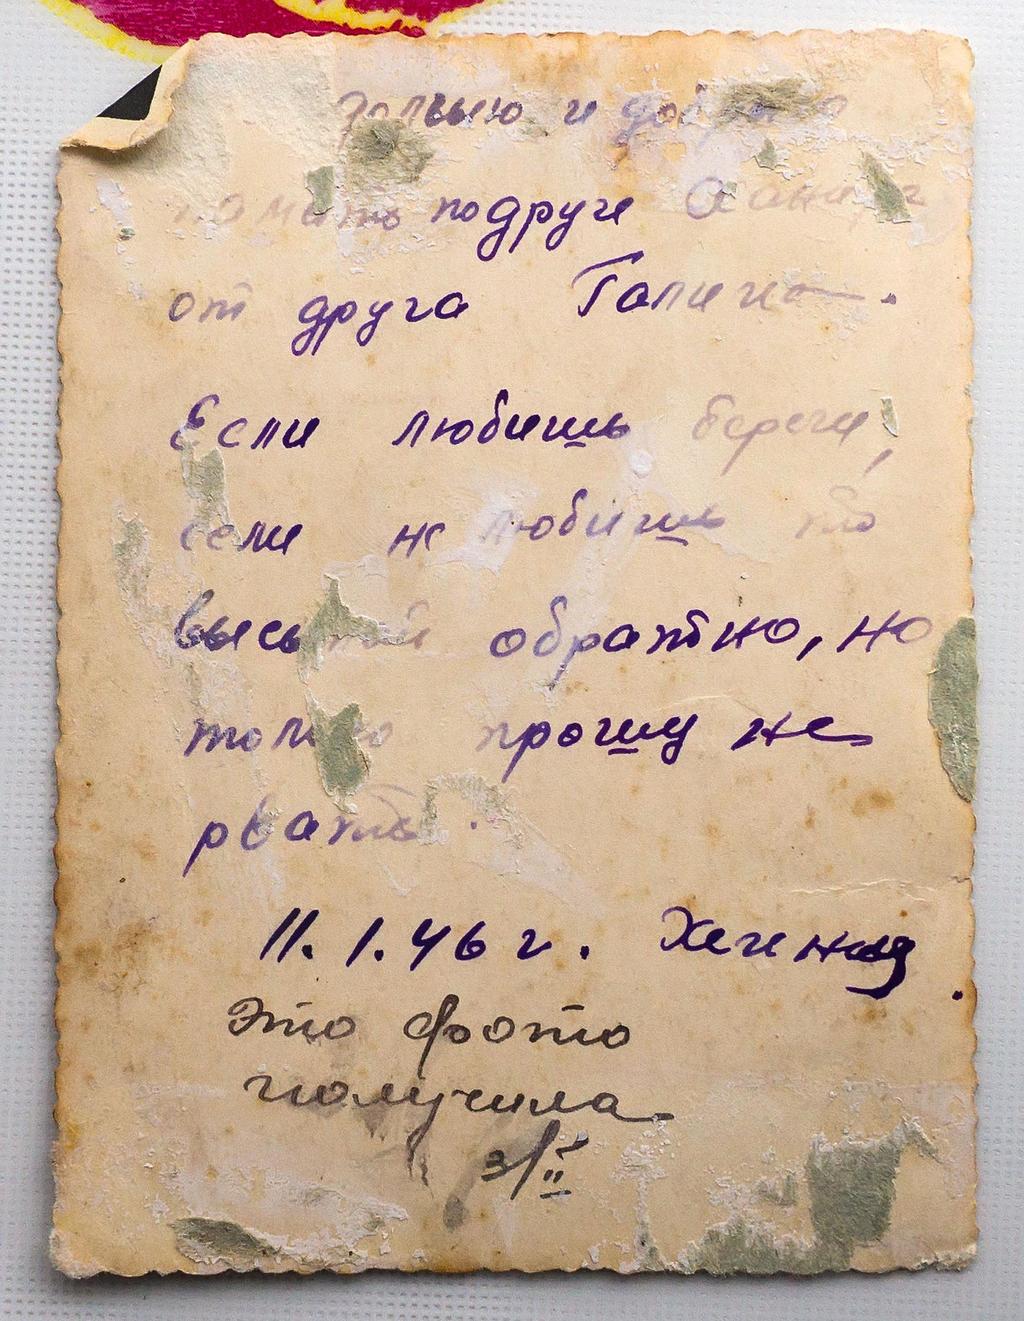 и
подруге
от друга Галины.
Если любишь береги,
если не любишь то
высылай обратно, но
только прошу не
рвать.
11.1.46 г.
Это фото
получила
3/II